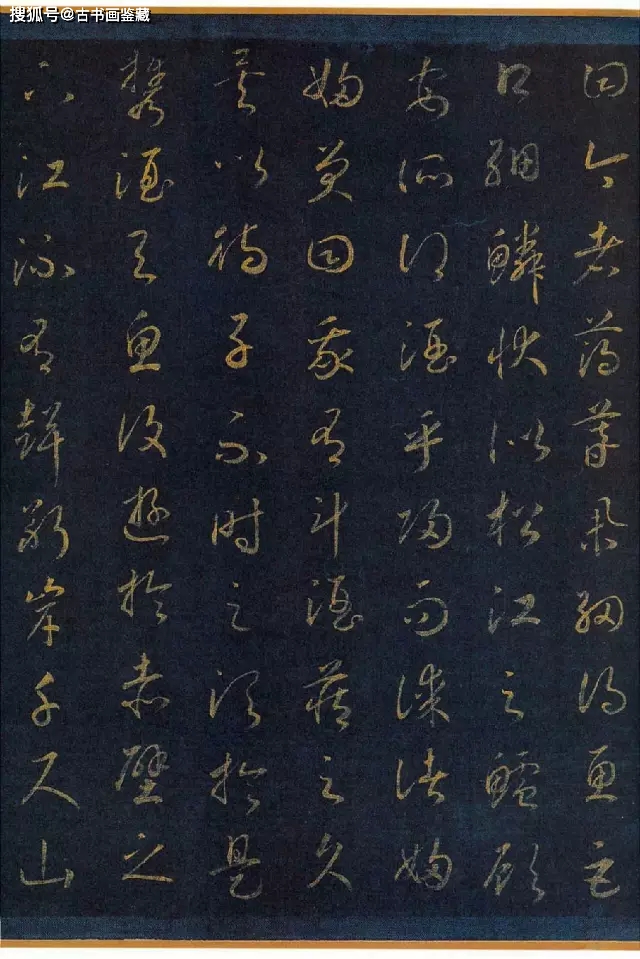 搜狐号@古书画鉴藏
曰今者薄暮舉網得魚巨
口細鱗狀似松江之鱸顧
安所得酒乎歸而謀諸婦
婦曰我有斗酒藏之久
矣以待子不時之須於是
攜酒與魚復遊於赤壁之
下江流有聲斷岸千尺山